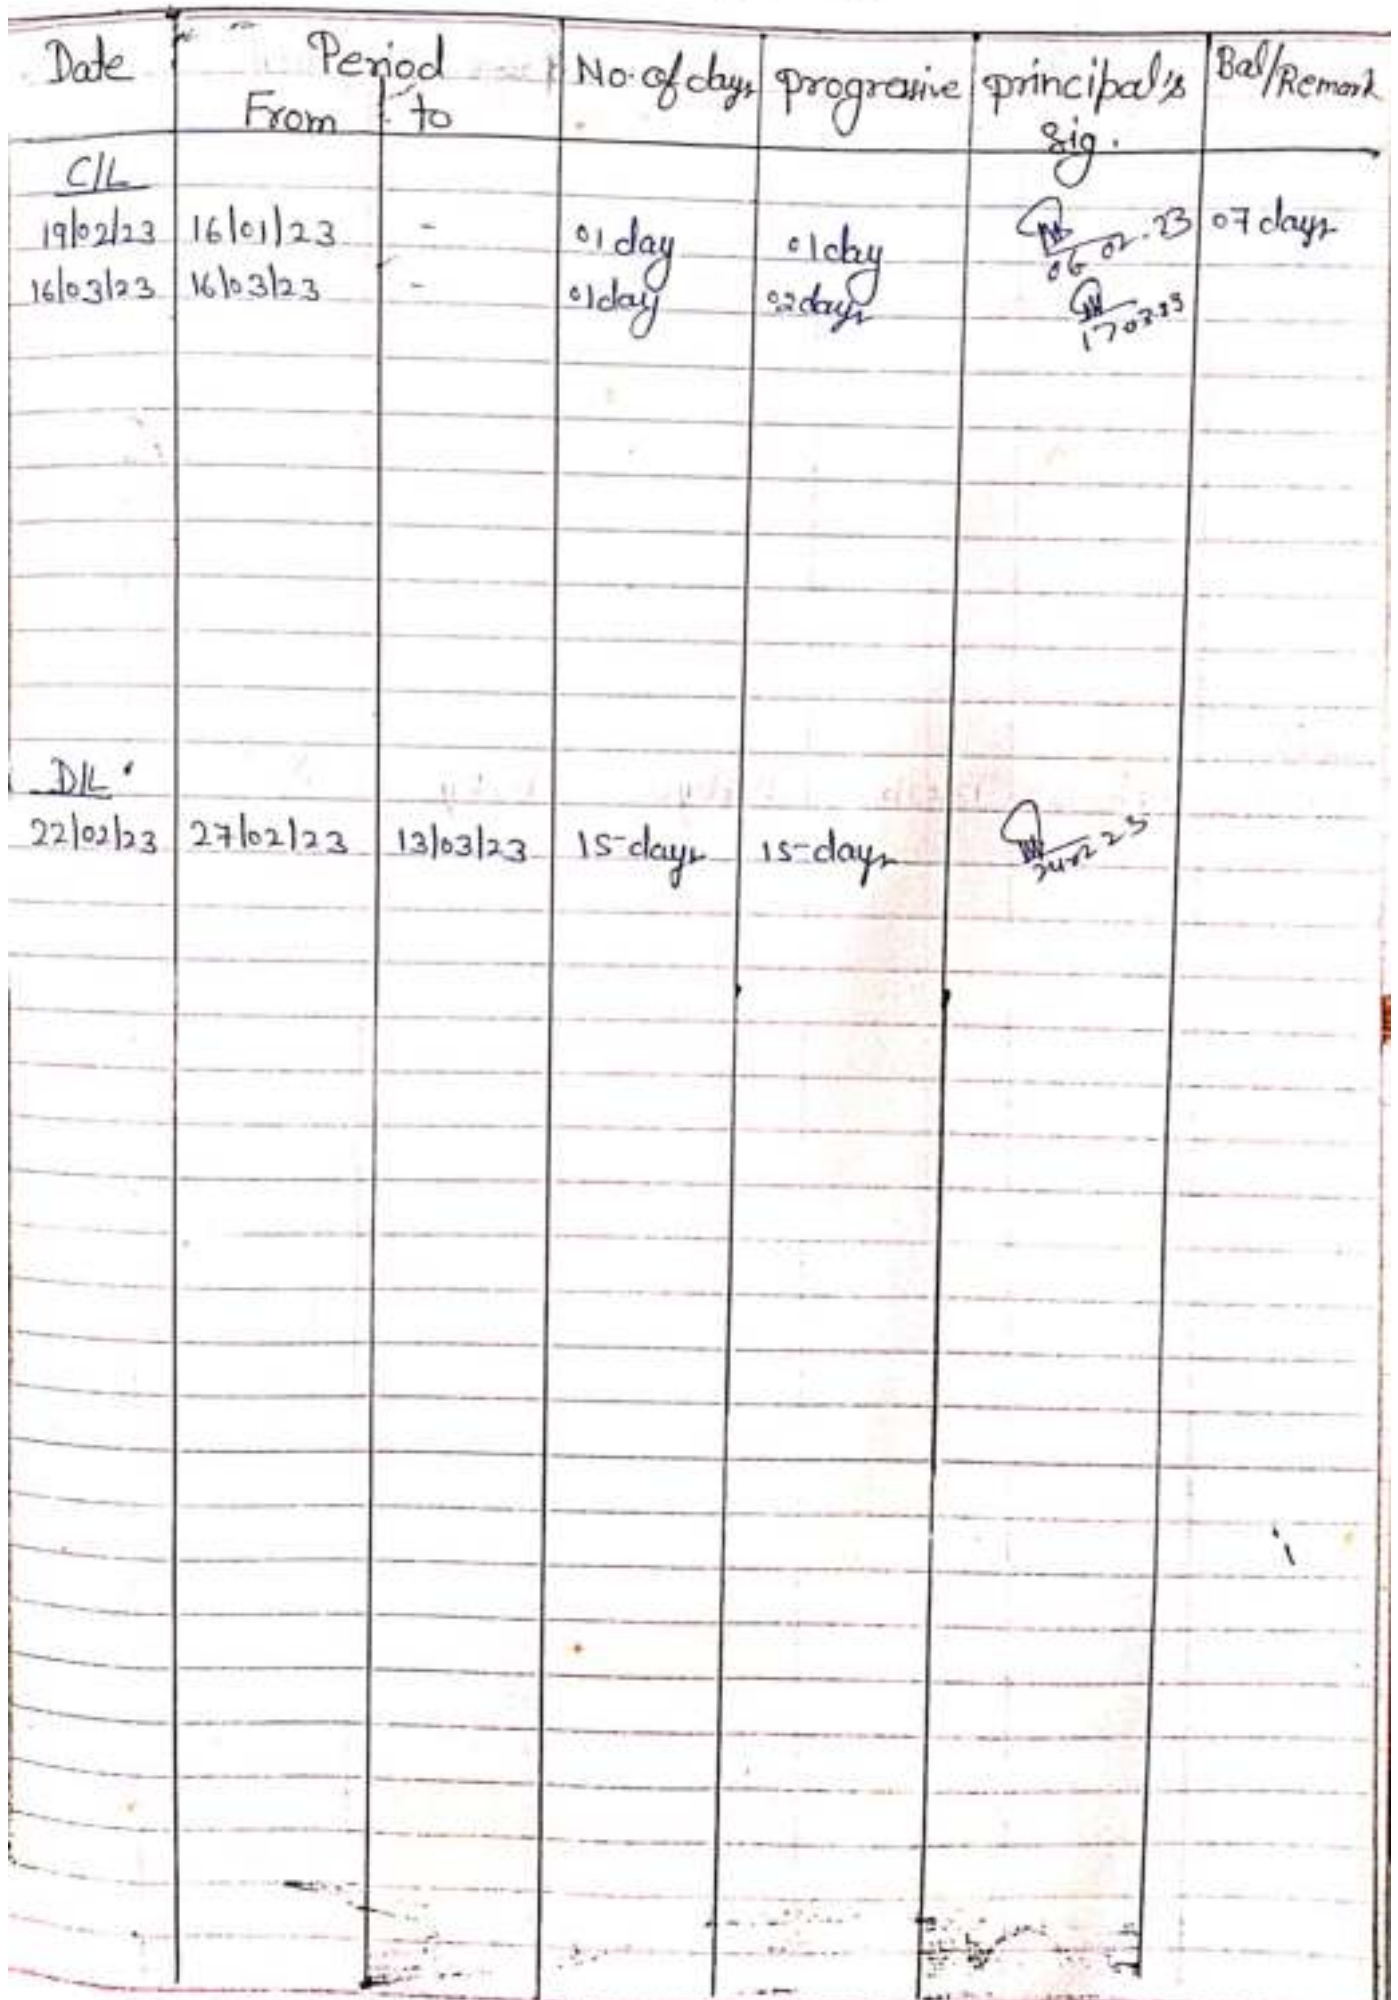 Date Period No. of days progressive principal's Bal/Remark
From to sig.
C/L
19/02/23 16/01/23 - 01 day 01 day 06 02.23 07 days
16/03/23 16/03/23 - 01 day 02 days
D/L
22/02/23 27/02/23 13/03/23 15-days 15-days